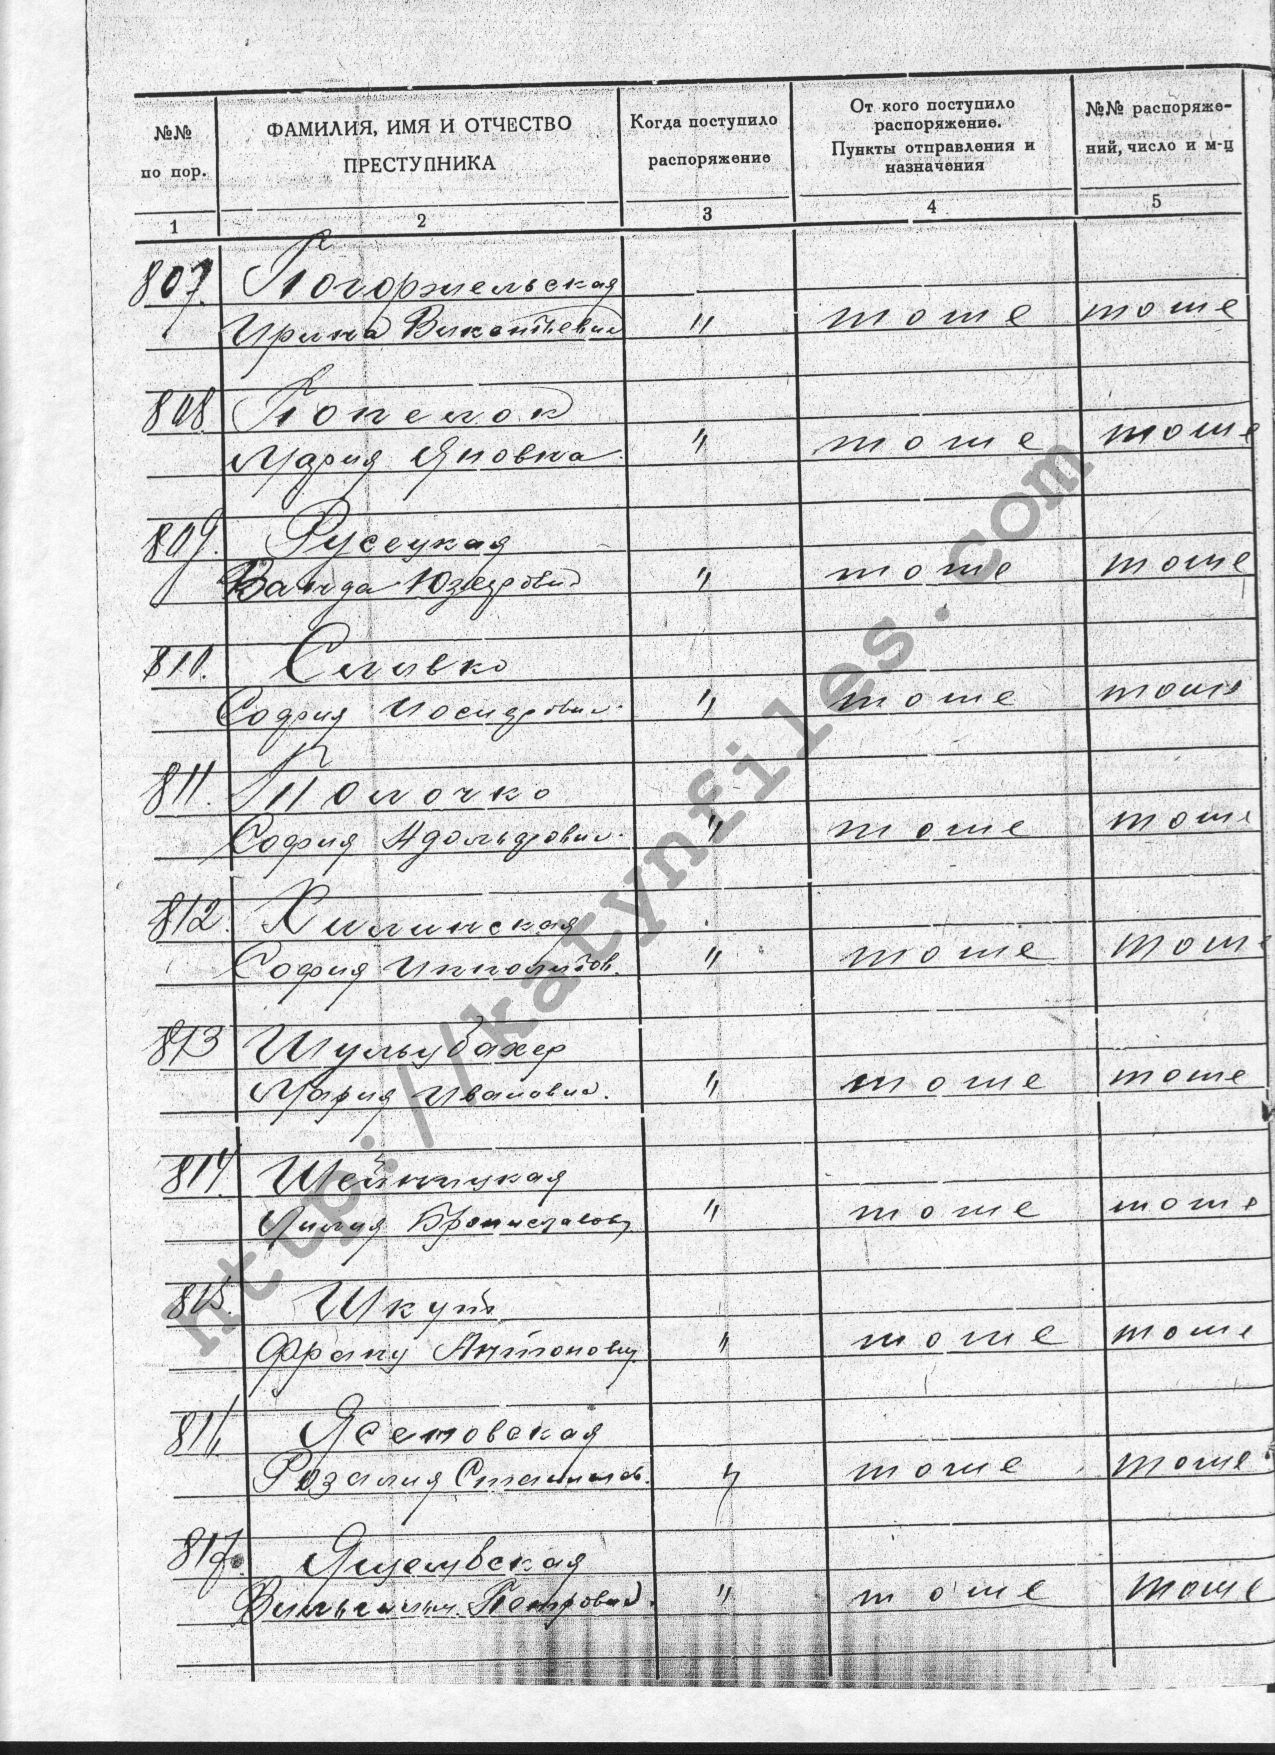 №№ по пор.
ФАМИЛИЯ, ИМЯ И ОТЧЕСТВО ПРЕСТУПНИКА
Когда поступило распоряжение
От кого поступило распоряжение. Пункты отправления и назначения
№№ распоряжений, число и м-ц
1 2 3 4 5
807. Погоржельская
Ирина Викентьевна " тоже тоже
808 Попелок
Мария Яновна " тоже тоже
809. Русецкая
Ванда " тоже тоже
810. Славко
София " тоже тоже
811. Полочко
София Адольфовн. " тоже тоже
812.
София Ипполитов. " тоже тоже
813 Шульцбахер
Мария Ивановна. " тоже тоже
814. Шейницкая
Брониславовн " тоже тоже
815 Шкут
Франц Антонович " тоже тоже
816 Ясеновская
Розалия Станислав. " тоже тоже
817.
Петровна. " тоже тоже
http://katynfiles.com